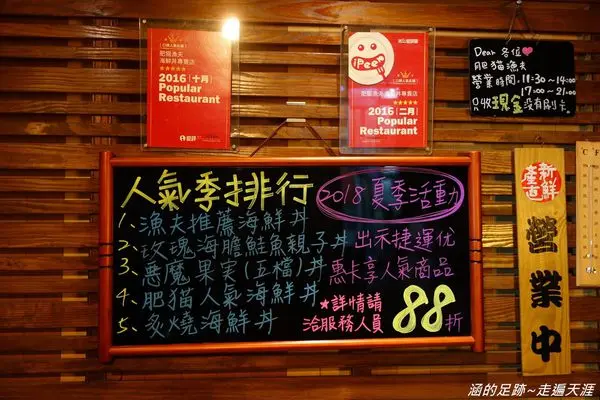 肥貓漁夫
海鮮丼專賣店
★★★★★
2016［十月］
Popular
Restaurant
iPeen
肥貓漁夫海鮮丼專賣店
★★★★★
2016［二月］
Popular
Restaurant
Dear 各位♥
肥貓漁夫
營業時間：11:30～14:00
17:00～21:00
只收現金沒有刷卡
人氣季排行
1、漁夫推薦海鮮丼
2、玫瑰海膽鮭魚親子丼
3、惡魔果実(五檔)丼
4、肥猫人氣海鮮丼
5、炙燒海鮮丼
2018夏季活動
出示捷運优
惠卡享人氣商品
★詳情請
洽服務人員
88折
新鮮
產直
營業中
涵的足跡~走遍天涯